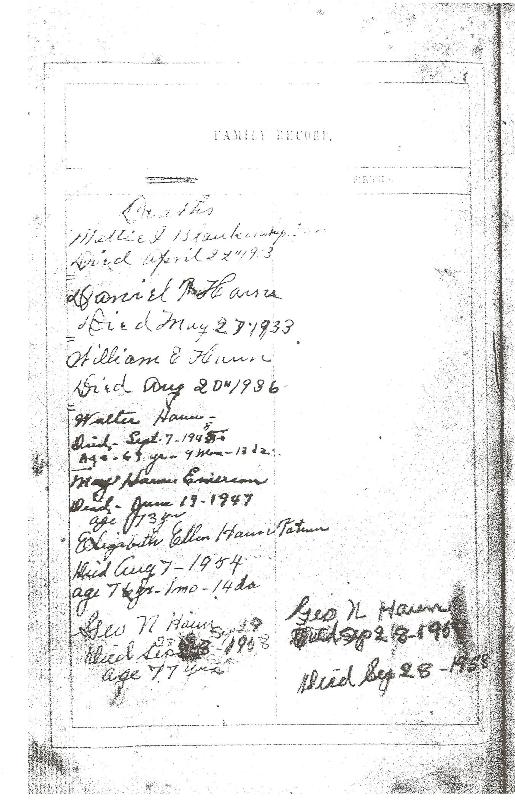 FAMILY RECORD.
Deaths
Mattie J Blankenship
Died April 22" 1913
Daniel N Haun
Died May 27 1933
William E Haun
Died Aug 20" 1936
Walter Haun -
Died - Sept - 7 - 1945
Age - 69 yrs - 9 mon - 13 da.
May Haun Emerson
Died - June 19 - 1947
age 73 yr
Elizabeth Ellen Haun Tatum
Died Aug 7 - 1954
age 76 yr - 1 mo - 14 da
Geo N Haun
Died Sep 28 1958
age 77 yrs
Geo N Haun
Died Sep 28 - 1958
Died Sep 28 - 1958